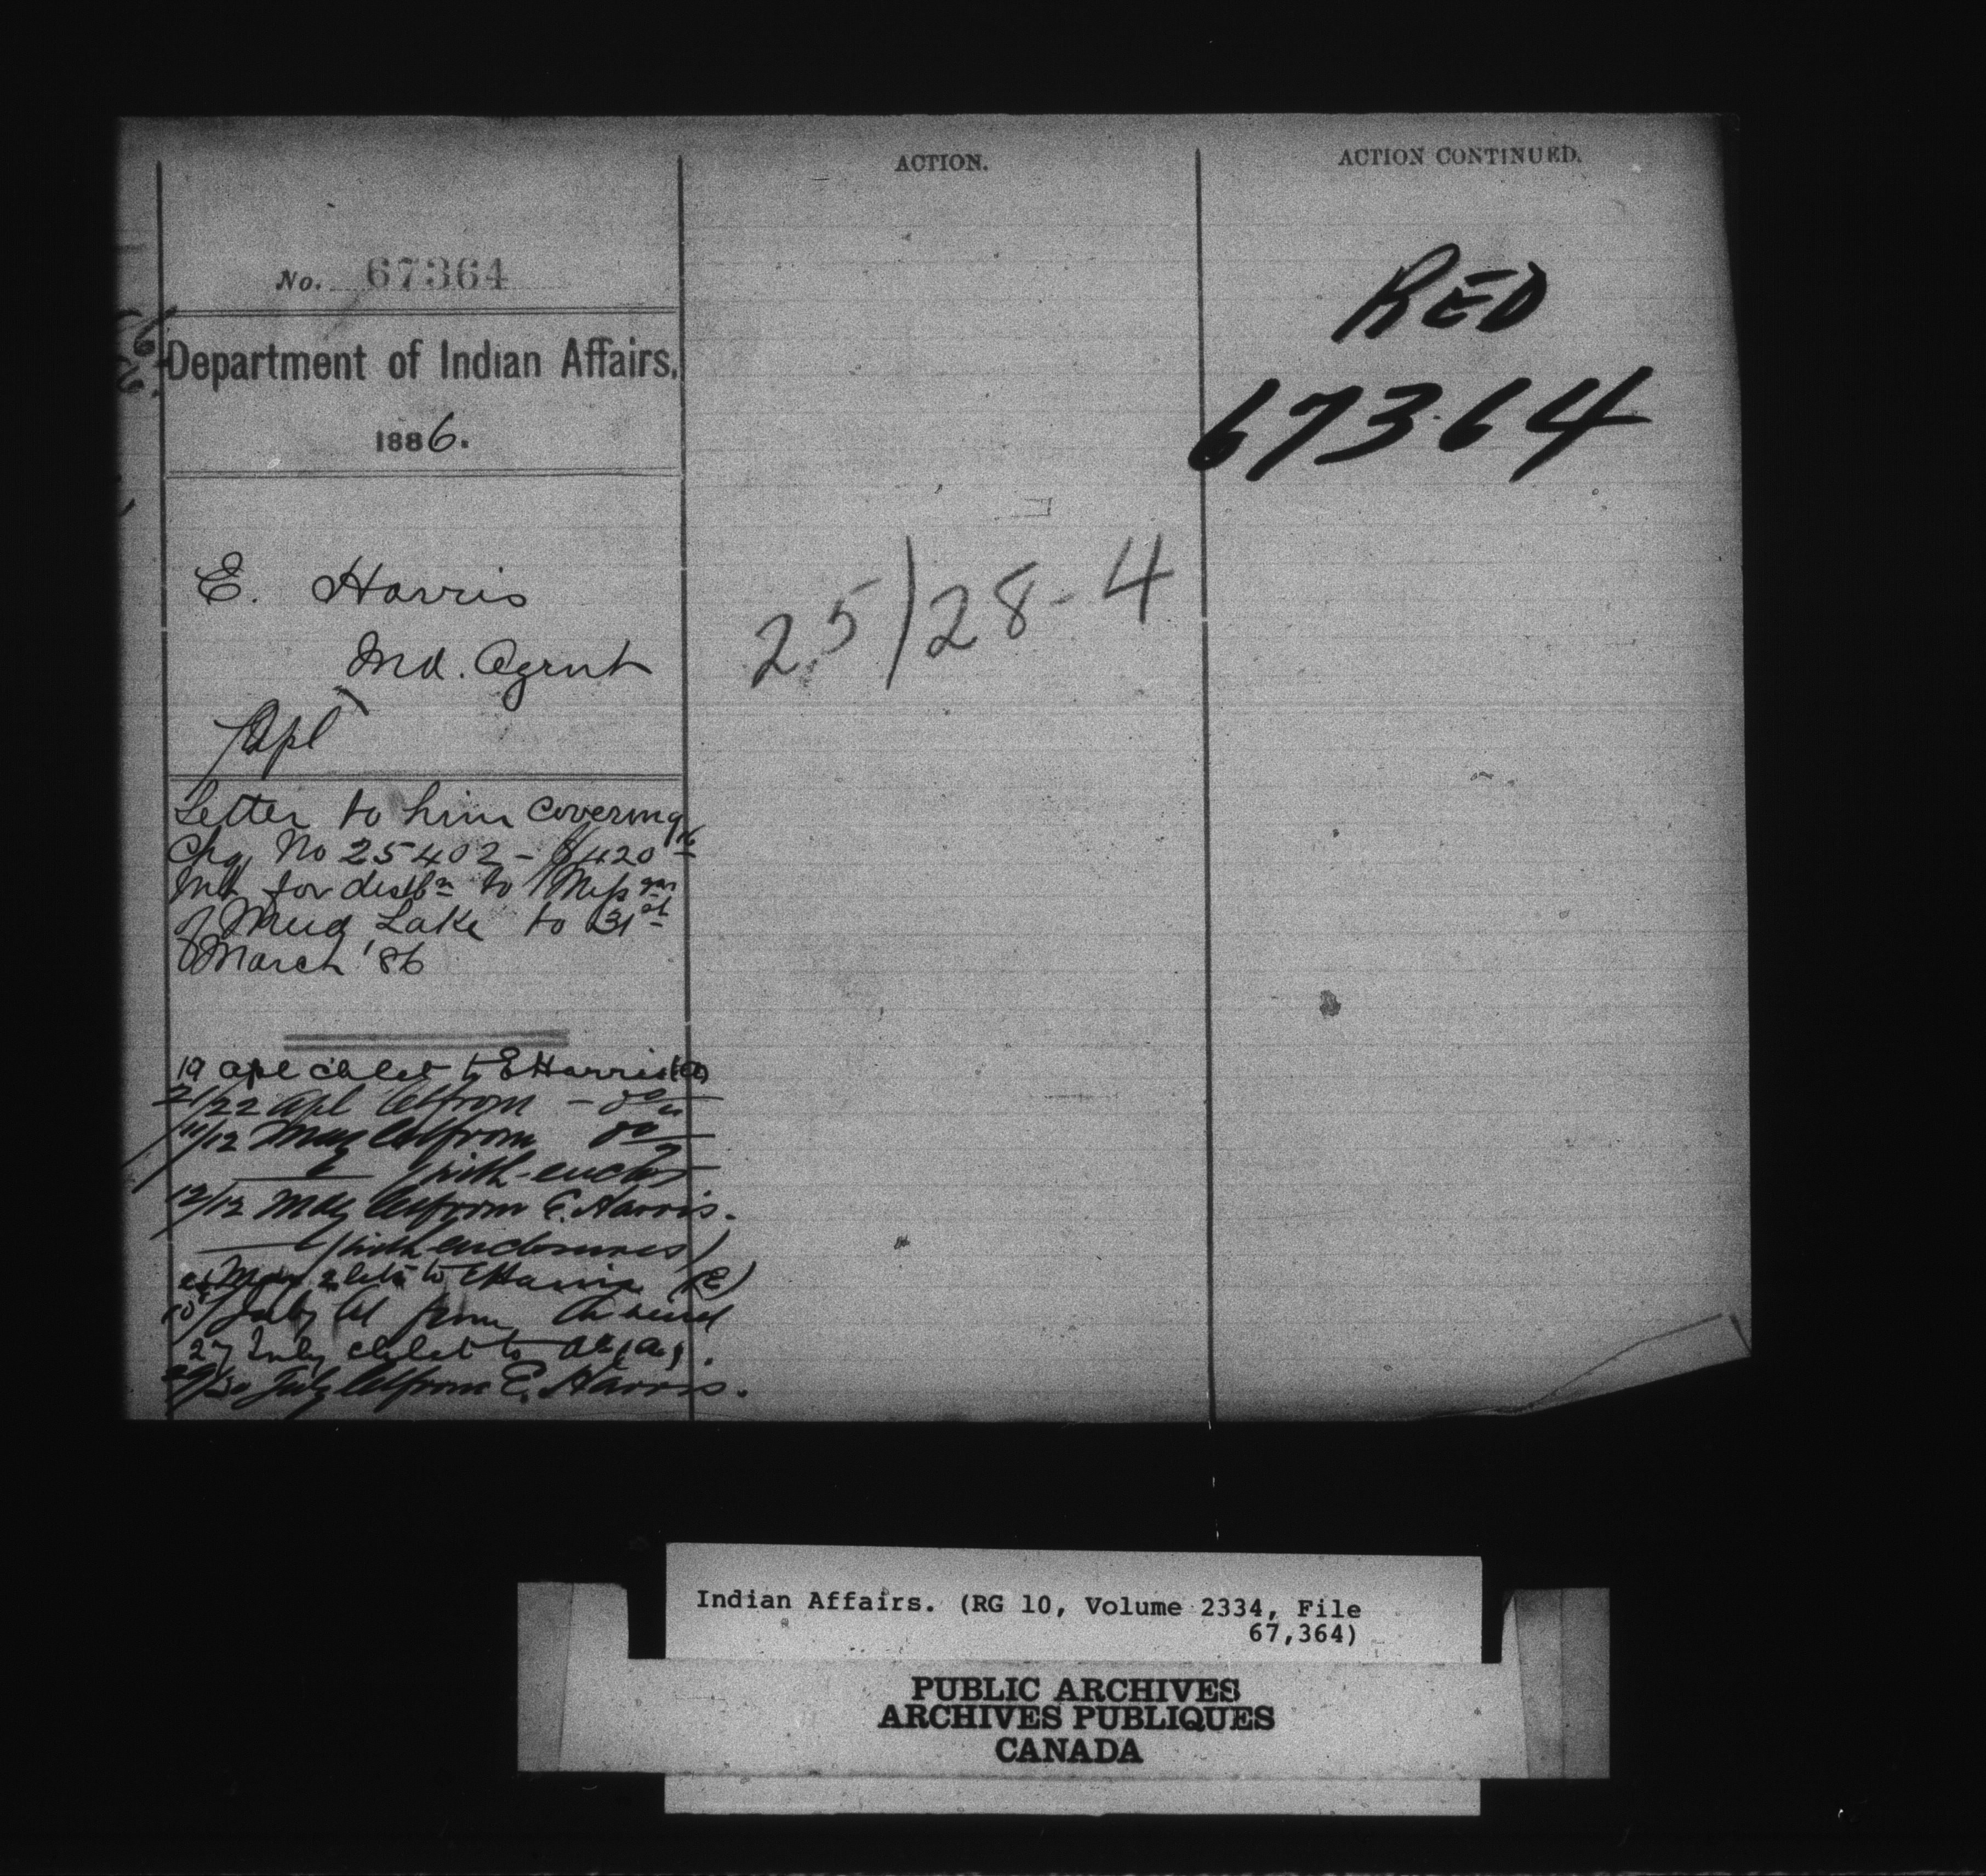 No. 67364
Department of Indian Affairs.
1886.
E. Harris
Ind. Agent
Apl
Letter to him covering
Chq. No 25402 - $420
Int. for distbn to Miss
of Mud Lake to 31st
March '86
19 Apl to E Harris
21/22 Apl from - do
11/12 May from do
with enclos
12/12 May from E. Harris.
(with enclosures)
May 2 lets to E Harris
July from
27 July to
July from E. Harris.
ACTION.
25/28-4
ACTION CONTINUED.
RED
67364
Indian Affairs. (RG 10, Volume 2334, File
67,364)
PUBLIC ARCHIVES
ARCHIVES PUBLIQUES
CANADA